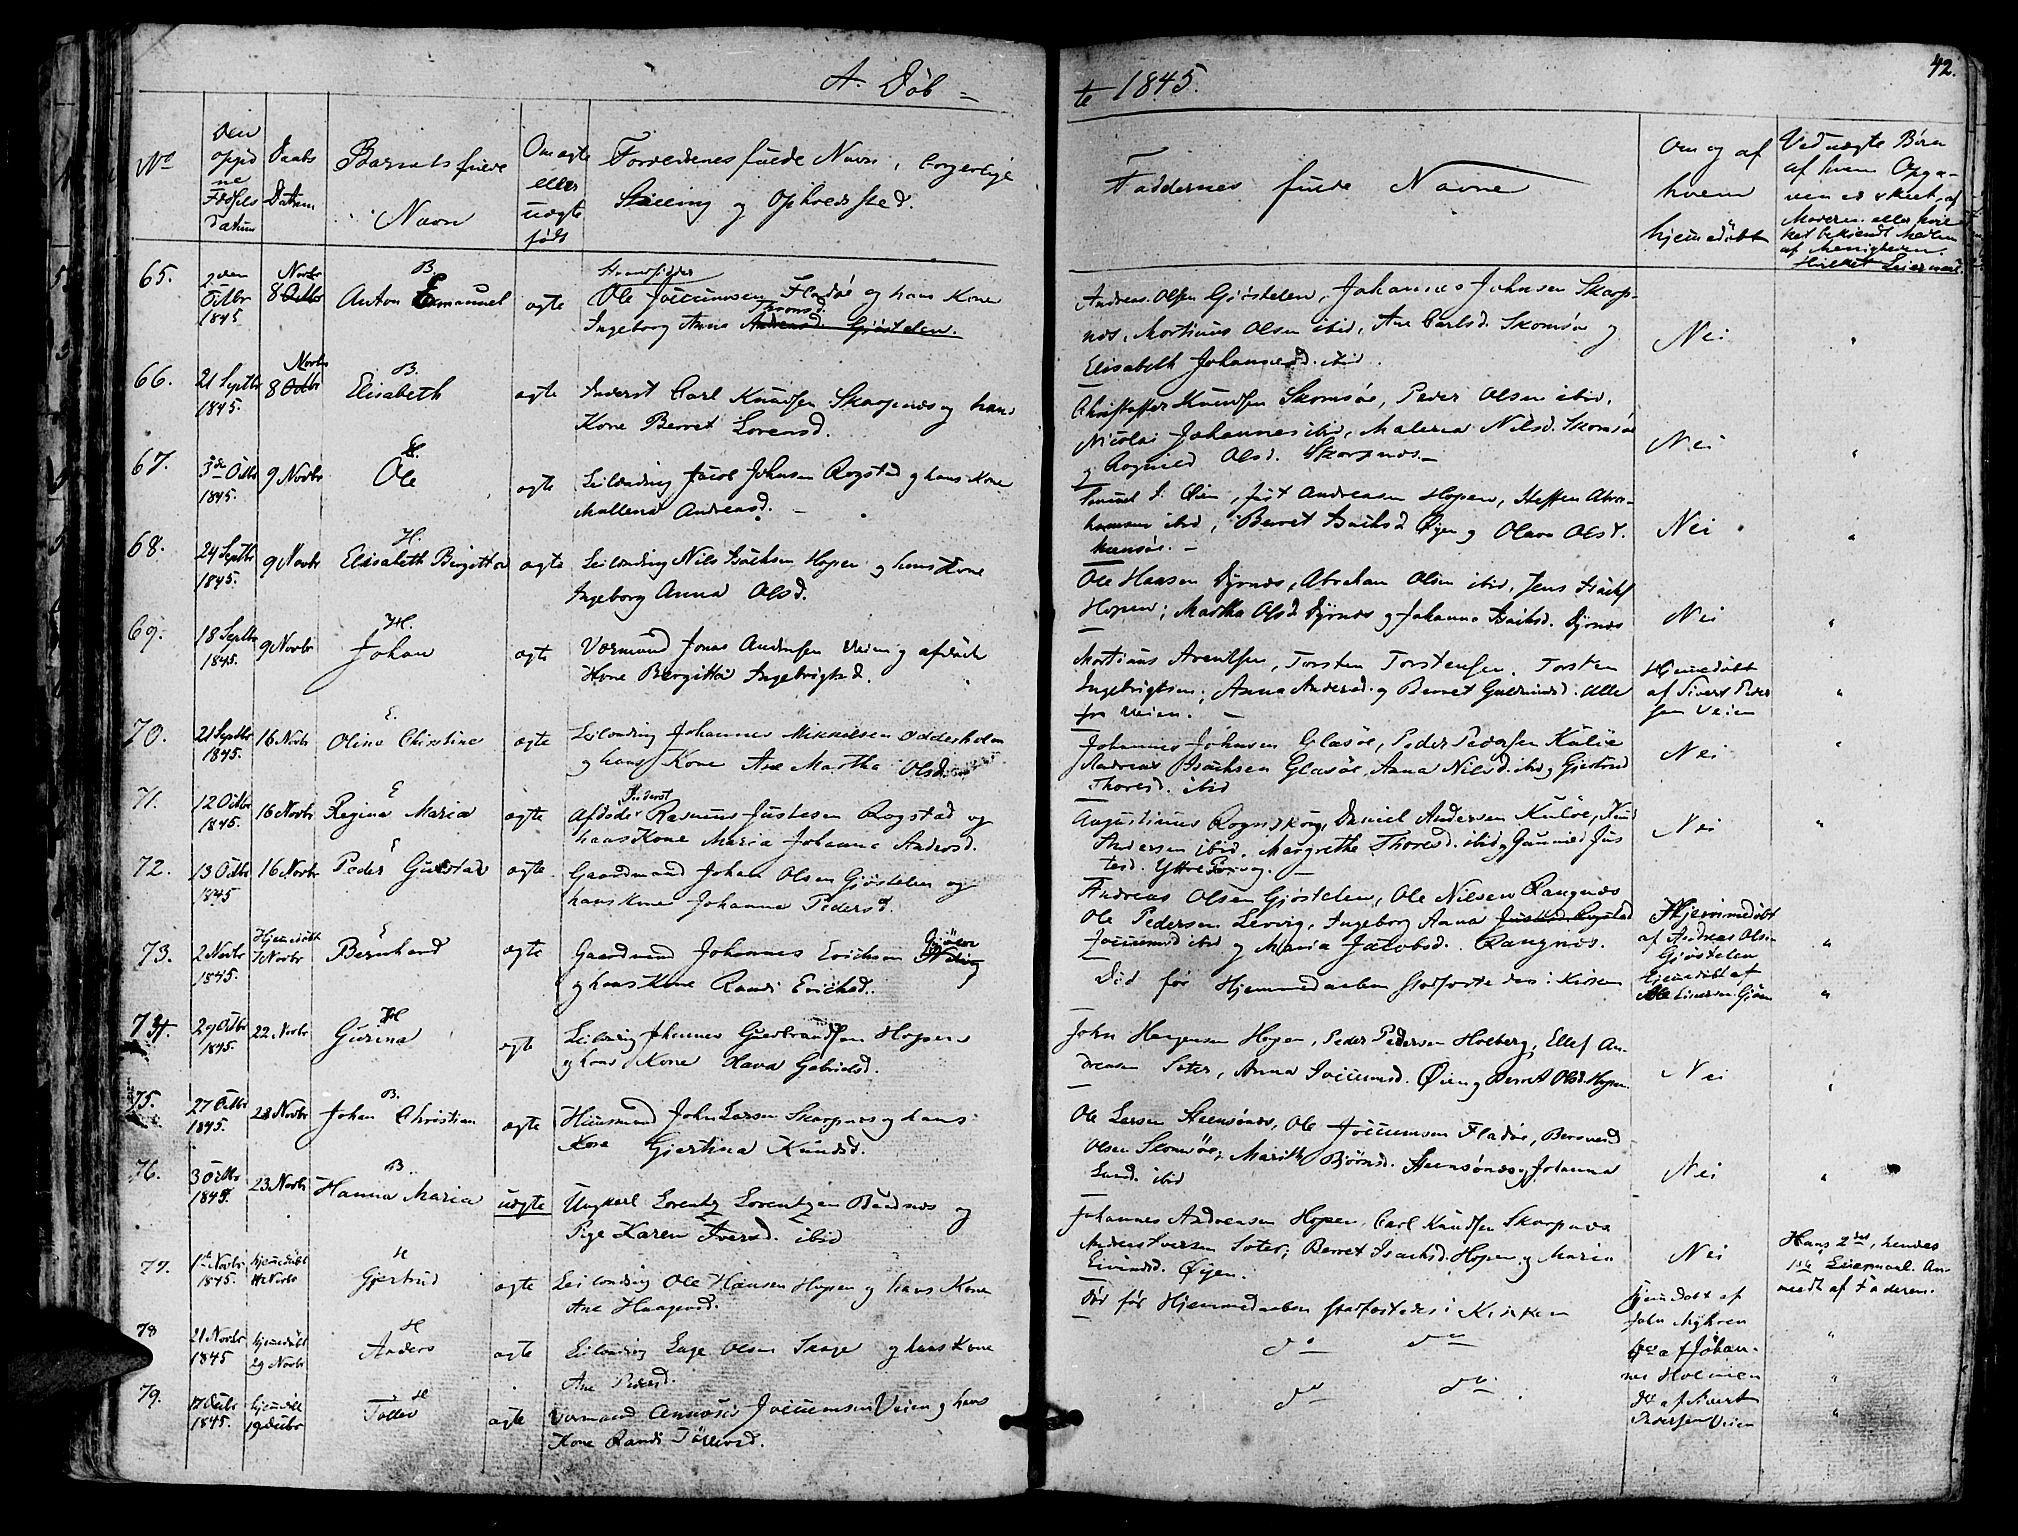 A. Døb-
te 1845.
42.
No
Den opgivne Fødsels Datum
Daabs Datum
Barnets fulde Navn
Om ægte eller uægte født
Forældrenes fulde Navn, borgerlige Stilling og Opholdsted.
Faddernes fulde Navne
Om og af hvem hjemedøbt
Ved uægte Børn af hvem Opgaven er skeet, af Moderen eller hvilket bekjendt Medlem af Menigheden. Hvilket Leiermaal.
65.
2den Octbr 1845
8 Octbr Novbr
B.
Anton Emanuel
ægte
Strandsidder
Ole Jocumsen Fladøe og hans Kone
Ingeborg Anna Andersd. Gjøstelen.
Andreas Olsen Gjøstelen, Johannes Johnsen Skarp-
næs, Mortinus Olsen ibid, Ane Carlsd. Skomsøe og
Elisabeth Johannesd. ibid.
Nei
"
66.
21 Septbr 1845.
8 Octbr Novbr
B.
Elisabeth
ægte
Inderst Carl Knudsen Skarpnæs og hans
Kone Berret Lorensd.
Christoffer Knudsen Skomsøe, Peder Olsen ibid,
Nicolai Johannes ibid, Malena Nilsd. Skomsøe
og Ragnild Olsd. Skarpnæs.-
Nei
"
67.
3de Octbr 1845.
9 Novbr
E.
Ole
ægte
Leilænding Jacob Johnsen Rogstad og hans Kone
Mallena Andreasd.
Øien, Just Andreasen Hopen, Steffen Abra-
hamsen ibid, Berret Isachsd Øyen og Olava Olsd.
Nei
"
68.
24 Septbr 1845.
9 Novbr
H.
Elisabeth Birgitta
ægte
Leilænding Nils Isachsen Hopen og hans Kone
Ingeborg Anna Olsd.
Ole Hansen Dyrnæs, Abraham Olsen ibid, Jens Isachs
Hopen; Martha Olsd Dyrnæs og Johanna Isachsd. Dyrnæs
Nei
"
69.
18 Septbr 1845.
9 Novbr
H.
Johan
ægte
Vormand Jonas Andersen Veien og afdøde
Kone Bergitta Ingebrigtsd.
Mortinus Arentsen, Torsten Torstensen, Torsten
Ingebrigtsen, Anna Andersd. og Berret Gudmunsd. alle
fra Veien.-
Hjemedøbt
af Sivert Peder
sen Veien
"
70.
21 Septbr 1845.
16 Novbr
E.
Olina Christina
ægte
Leilænding Johannes Mikkelsen Odderholm
og hans Kone Ane Martha Olsd.
Johannes Johnsen Glasøe, Peder Pedersen Kuløe
Andreas Isachsen Glasøe, Anna Nilsd. ibid og Gjertrud
Thoresd. ibid
Nei
"
71.
12 Octbr 1845.
16 Novbr
E
Regina Maria
ægte
Inderst
Afdøde Rasmus Justesen Rogstad og
hans Kone Maria Johanna Andersd.
Augustinus Rogndskog, Daniel Andersen Kuløe, Knud
Andersen ibid, Margrethe Thoresd. ibid og Gunnild Jus
tesd. Yttre
Nei
"
72.
13 Octbr 1845
16 Novbr
E
Peder Gustav
ægte
Gaardmand Johan Olsen Gjøstelen og
hans Kone Johanna Pedersd.
Andreas Olsen Gjøstelen, Ole Nilsen Rangnæs
Ole Pedersen Lervig, Ingeborg Anna Justesd. Rogstad
Jocumsd ibid og Maria Jacobsd. Rangnæs.
Hjemmedøbt
af Andreas Olsen
Gjøstelen
"
73.
2 Novbr 1845.
Hjemedøbt 7 Novbr
E
Bernhard
ægte
Gaardmand Johannes Erichsen Gjølen
og hans Kone Randi Erichsd.
Død før Hjemmedaaben stadfæstedes i Kirken
Hjemedøbt af
"
74.
29 Octbr 1845.
22 Novbr
H
Gurina
ægte
Leilænding Johannes Guldbrandsen Hopen
og hans Kone Hava Gabrielsd.
John Haagensen Hopen, Peder Pedersen Holberg, Ellef An-
dreasen Soter, Anna Jocumsd. Øien og Berret Olsd. Hopen.
Nei
"
75.
27 Octbr 1845.
23 Novbr
B.
Johan Christian
ægte
Huusmand John Larsen Skarpnæs og hans
Kone Gjertina Knudsd.
Ole Larsen Steensønæs, Ole Jocumsen Fladøe, Bersvend
Olsen Skomsøe, Marith Bjørnsd. Steensønæs og Johanna
Lund. ibid
Nei
"
76.
3 Octbr 1845.
23 Novbr
B.
Hanna Maria
uægte
Ungkarl Lorentz Lorentzen Baadnæs og
Pige Karen Iversd. ibid
Johannes Andreasen Hopen, Carl Knudsen Skarpnæs
Anders Iversen Soter, Berret Isachsd. Hopen og Maria
Eivindsd. Øyen.
Nei
Hans 2det, hendes
1ste Leiermaal. An-
meldt af Faderen.
77.
1ste Novbr 1845.
hjemedøbt Novbr
H
Gjertrud
ægte
Leilænding Ole Hansen Hopen og hans Kone
Ane Haagensd.
Død før Hjemmedaaben stadfæstedes i Kirken
hjemedøbt af
John Myhren
"
78
21 Novbr 1845
hjemedøbt 29 Novbr
H
Anders
ægte
Leilænding Lage Olsen Skage og hans Kone
Ane Pedersd.
do do
do af Johan-
nes Holmen
"
79.
17 Decbr 1845.
hjemedøbt 19 Decbr
H
Tollev
ægte
Vormand Annæus Jocumsen Veien og hans
Kone Randi Tollevsd.
do do
do af Sivert
Pedersen Veien
"